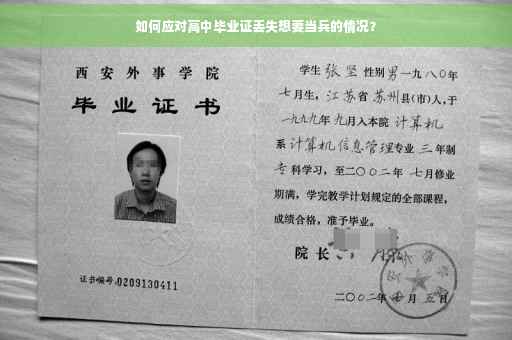 如何应对高中毕业证丢失想要当兵的情况？
西安外事学院
毕业证书
证书编号:0209130411
学生 张坚 性别 男 一九八〇年
七月生，江苏省 苏州 县(市)人，于
一九九九年 九月入本院 计算机
系 计算机信息管理 专业 三 年制
专 科学习，至二〇〇二年 七月修业
期满，学完教学计划规定的全部课程，
成绩合格，准予毕业。
院长
二〇〇二年 月 五日